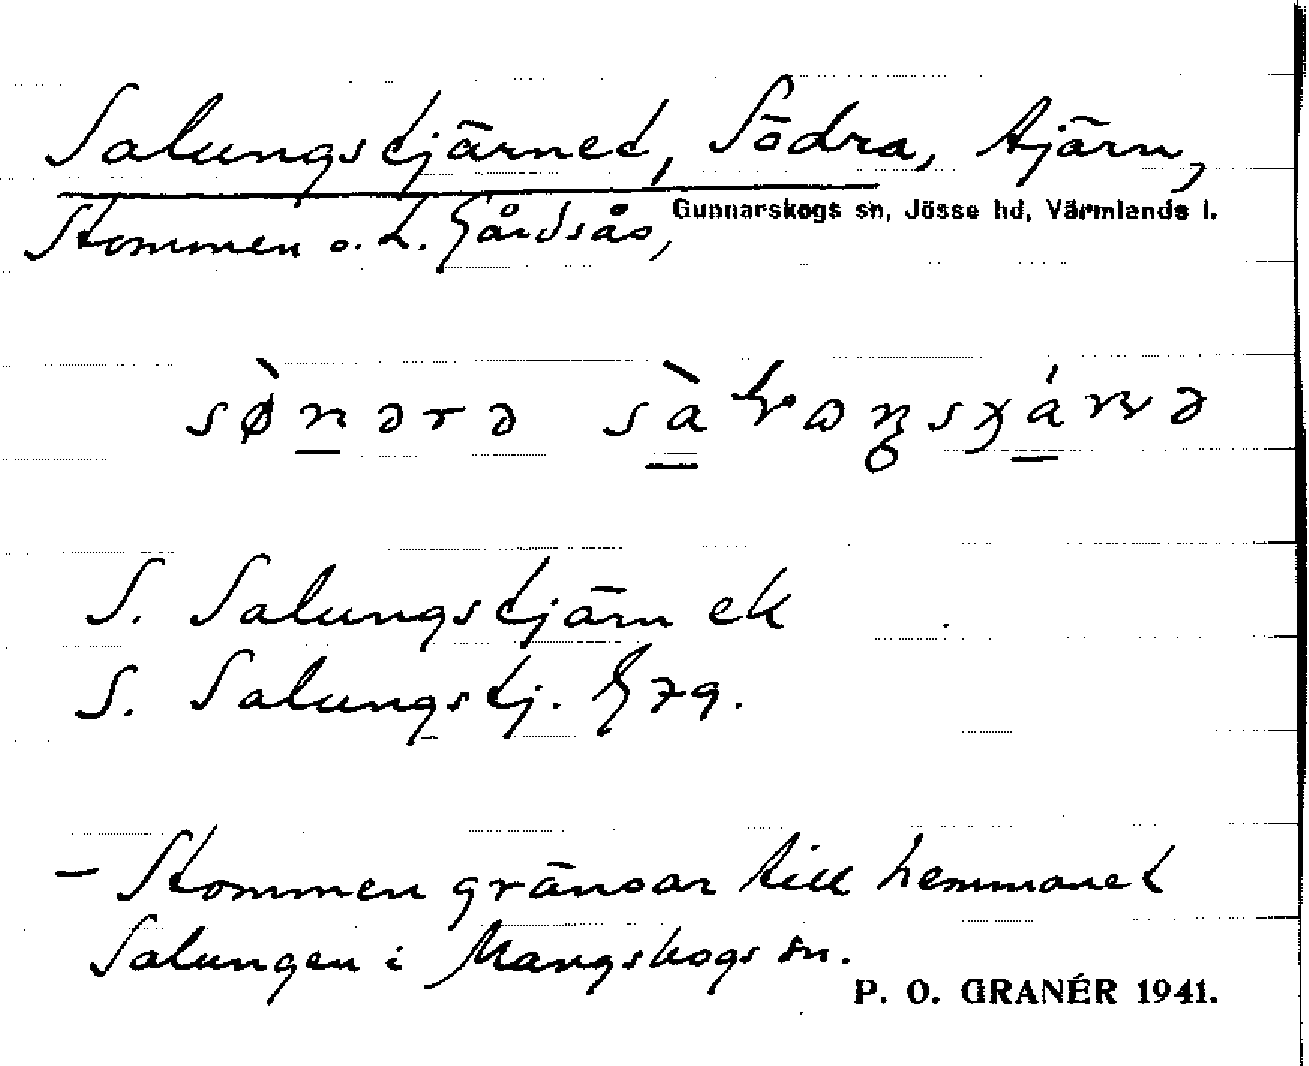 Salungstjärnet, Södra, tjärn,
Gunnarskogs sn, Jösse hd, Värmlands l.
Stommen o. L. Gårdsås,
S. Salungstjärn ek
S. Salungstj. G79.
– Stommen gränsar till hemmanet
Salungen i Mangskogs sn.
P. O. GRANÉR 1941.